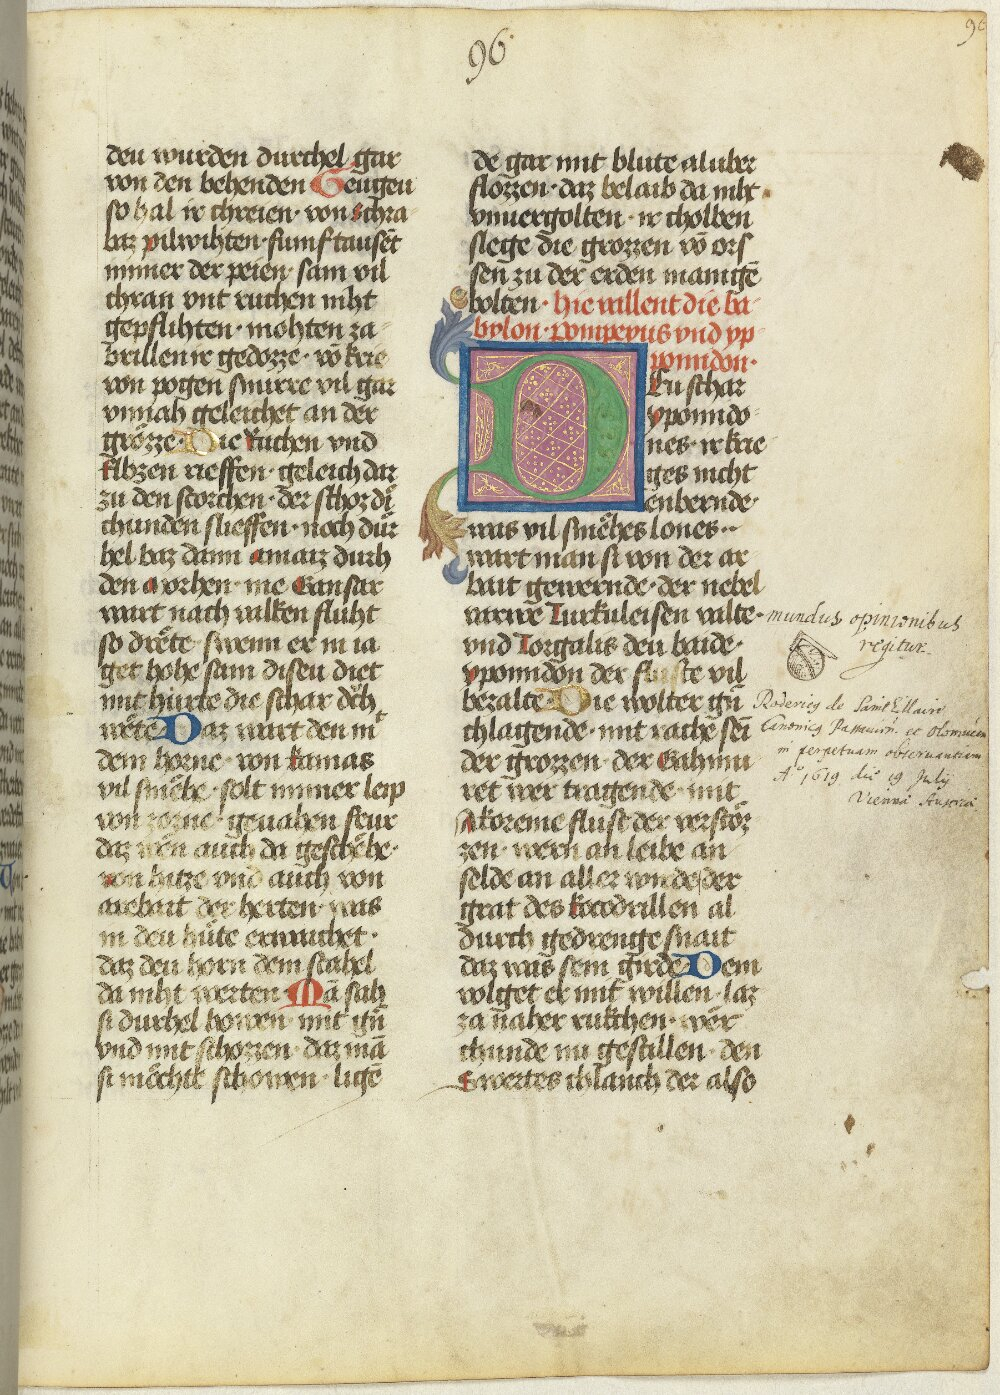 96
96
deu wurden durchel gar
von den behenden Geugeu
so hal ir chreien· von schra
baz pilwihten· funf tausēt
immer der peien· sam vil
chran vnt ruchen niht
gepflihten· mohten za
brillen ir gedozze· võ krie
von pogen snurre vil gar
vnnah geleichet an der
grözze· Die kuchen vnd
rieffen· geleich daz
zu den storchen· der
chunden slieffen· noch dur
hel baz dann amaiz durh
den
wart nach valken fluht
so dræte· swenn er in ia
get hohe sam diseu diet
mit hurte die schar
wēte Daz wart den mͭ
dem horne· von kamas
vil smæhe· solt immer leip
von zorne· geuahen feur
daz wēn auch da geschæhe·
von hitze vnd auch von
arebait der herten· was
in deu hüte erwaichet·
daz deu horn dem stahel
da niht werten Mā sah
si durhel howen· mit gū
vnd mit schozzen· daz mā
si möchte schowen· ligē
de gar mit blute al uber
flozzen· daz belaib da niht
vnuergolten· ir cholben
slege die grozzen võ ors
sen zu der erden manigē
bolten· hie vallent die ba
bylon· pompeyus vnd yp
pomidon·
Eu schar
yponido
nes· ir krie
ges nicht
enbernde·
was vil smæhes lones··
wart man si von der ar
bait gewernde· der nebel
varwe Turkuleisen valte·
vnd Torgalis den baide·
yponidon der fluste vil
bezalte· Die wolter gū
chlagende· mit rache sei
der grozzen· der Gahmu
ret wer tragende· mit
Akoreine flust der verstöz
zen· wern an leibe an
selde an aller wirde der
grat des kocodrillen al
durch gedrenge snait
daz was sein girde Dem
volget er mit willen· laz
za naher rukchen· wer
chunde nu gestillen· den
swertes chlanch der also
mundus opinionibus
regitur.
Rodericq de Saint Ellairi
Canonicq Passauien. et Olomucen
in perpetuam obseruantiam
Aᵒ 1619 die 19 July
Viennæ Austriæ.